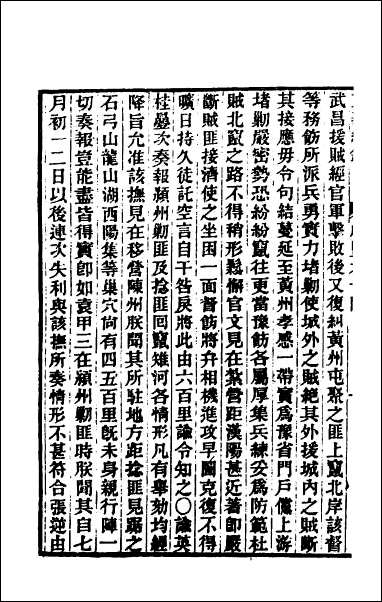 武昌援賊經官軍擊敗後又復糾黃州屯聚之匪上竄北岸該督
等務飭所派兵勇實力堵勦使城外之賊絕其外援城內之賊斷
其接應毋令句結蔓延至黃州孝感一帶實爲豫省門戶儻上游
堵勦嚴密勢恐紛紛竄往更當豫飭各屬厚集兵練妥爲防範杜
賊北竄之路不得稍形鬆懈官文見在紮營距漢陽甚近著卽嚴
斷賊匪接濟使之坐困一面督飭將弁相機進攻早圖克復不得
曠日持久徒託空言自干咎戾將此由六百里諭令知之〇諭英
桂屢次奏報潁州勦匪及捻匪回竄雉河各情形凡有舉劾均經
降旨允准該撫見在移營陳州朕聞其所駐地方距捻匪見踞之
石弓山龍山湖西陽集等巢穴尙有四五百里旣未身親行陣一
切奏報豈能盡皆得實卽如袁甲三在潁州勦匪時朕聞其自七
月初一二日以後連次失利與該撫所奏情形不甚符合張逆由